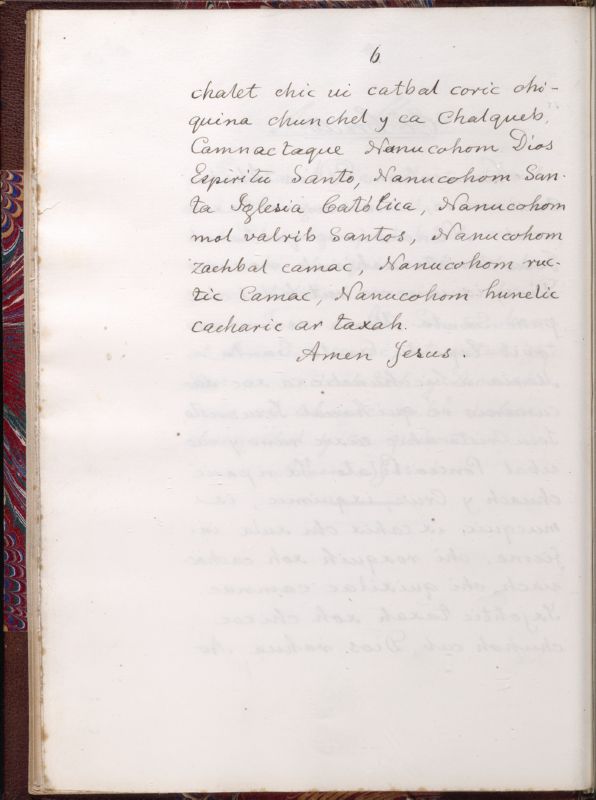 6
chalet chic ui catbal coric chi-
quina chunchel y ca Chalqueb.
Camnactaque Nanucohom Dios
Espiritu Santo, Nanucohom San-
ta Iglesia Católica, Nanucohom
mol valrib Santos, Nanucohom
zachbal camac, Nanucohom ruc-
tic Camac, Nanucohom hunelic
cacharic ar taxah.
Amen Jesus.